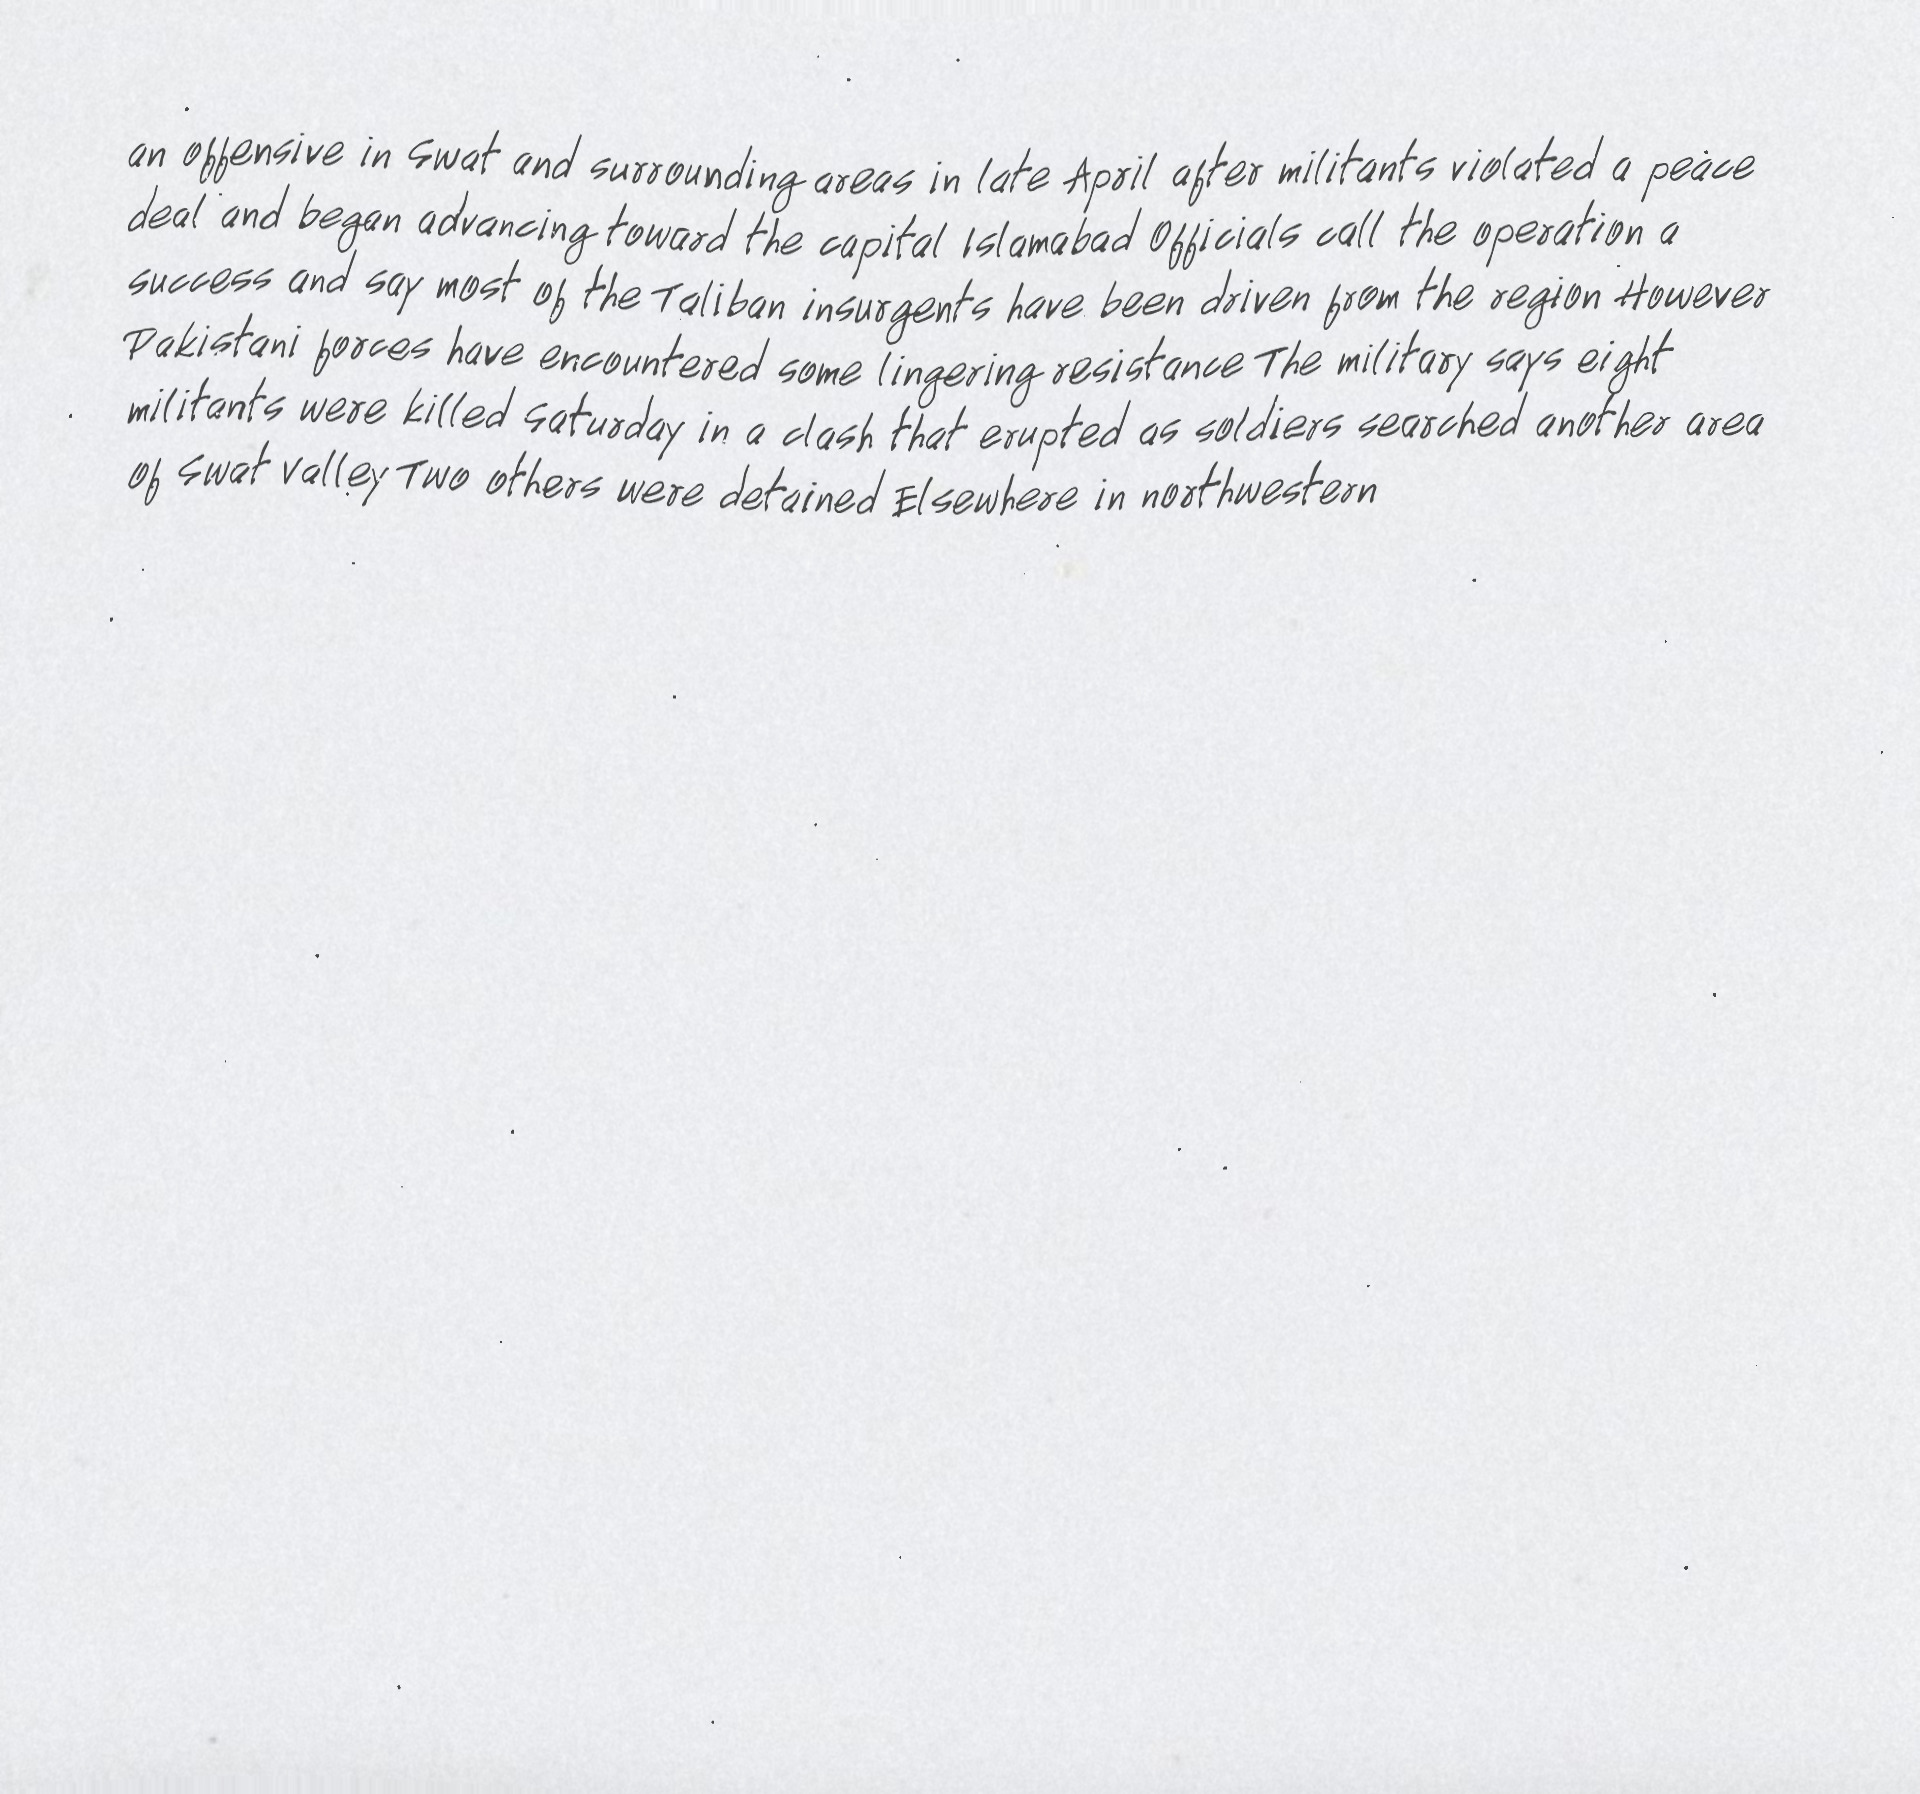 an offensive in Swat and surrounding areas in late April after militants violated a peace
deal and began advancing toward the capital Islamabad Officials call the operation a
success and say most of the Taliban insurgents have been driven from the region However
Pakistani forces have encountered some lingering resistance The military says eight
militants were killed Saturday in a clash that erupted as soldiers searched another area
of Swat Valley Two others were detained Elsewhere in northwestern